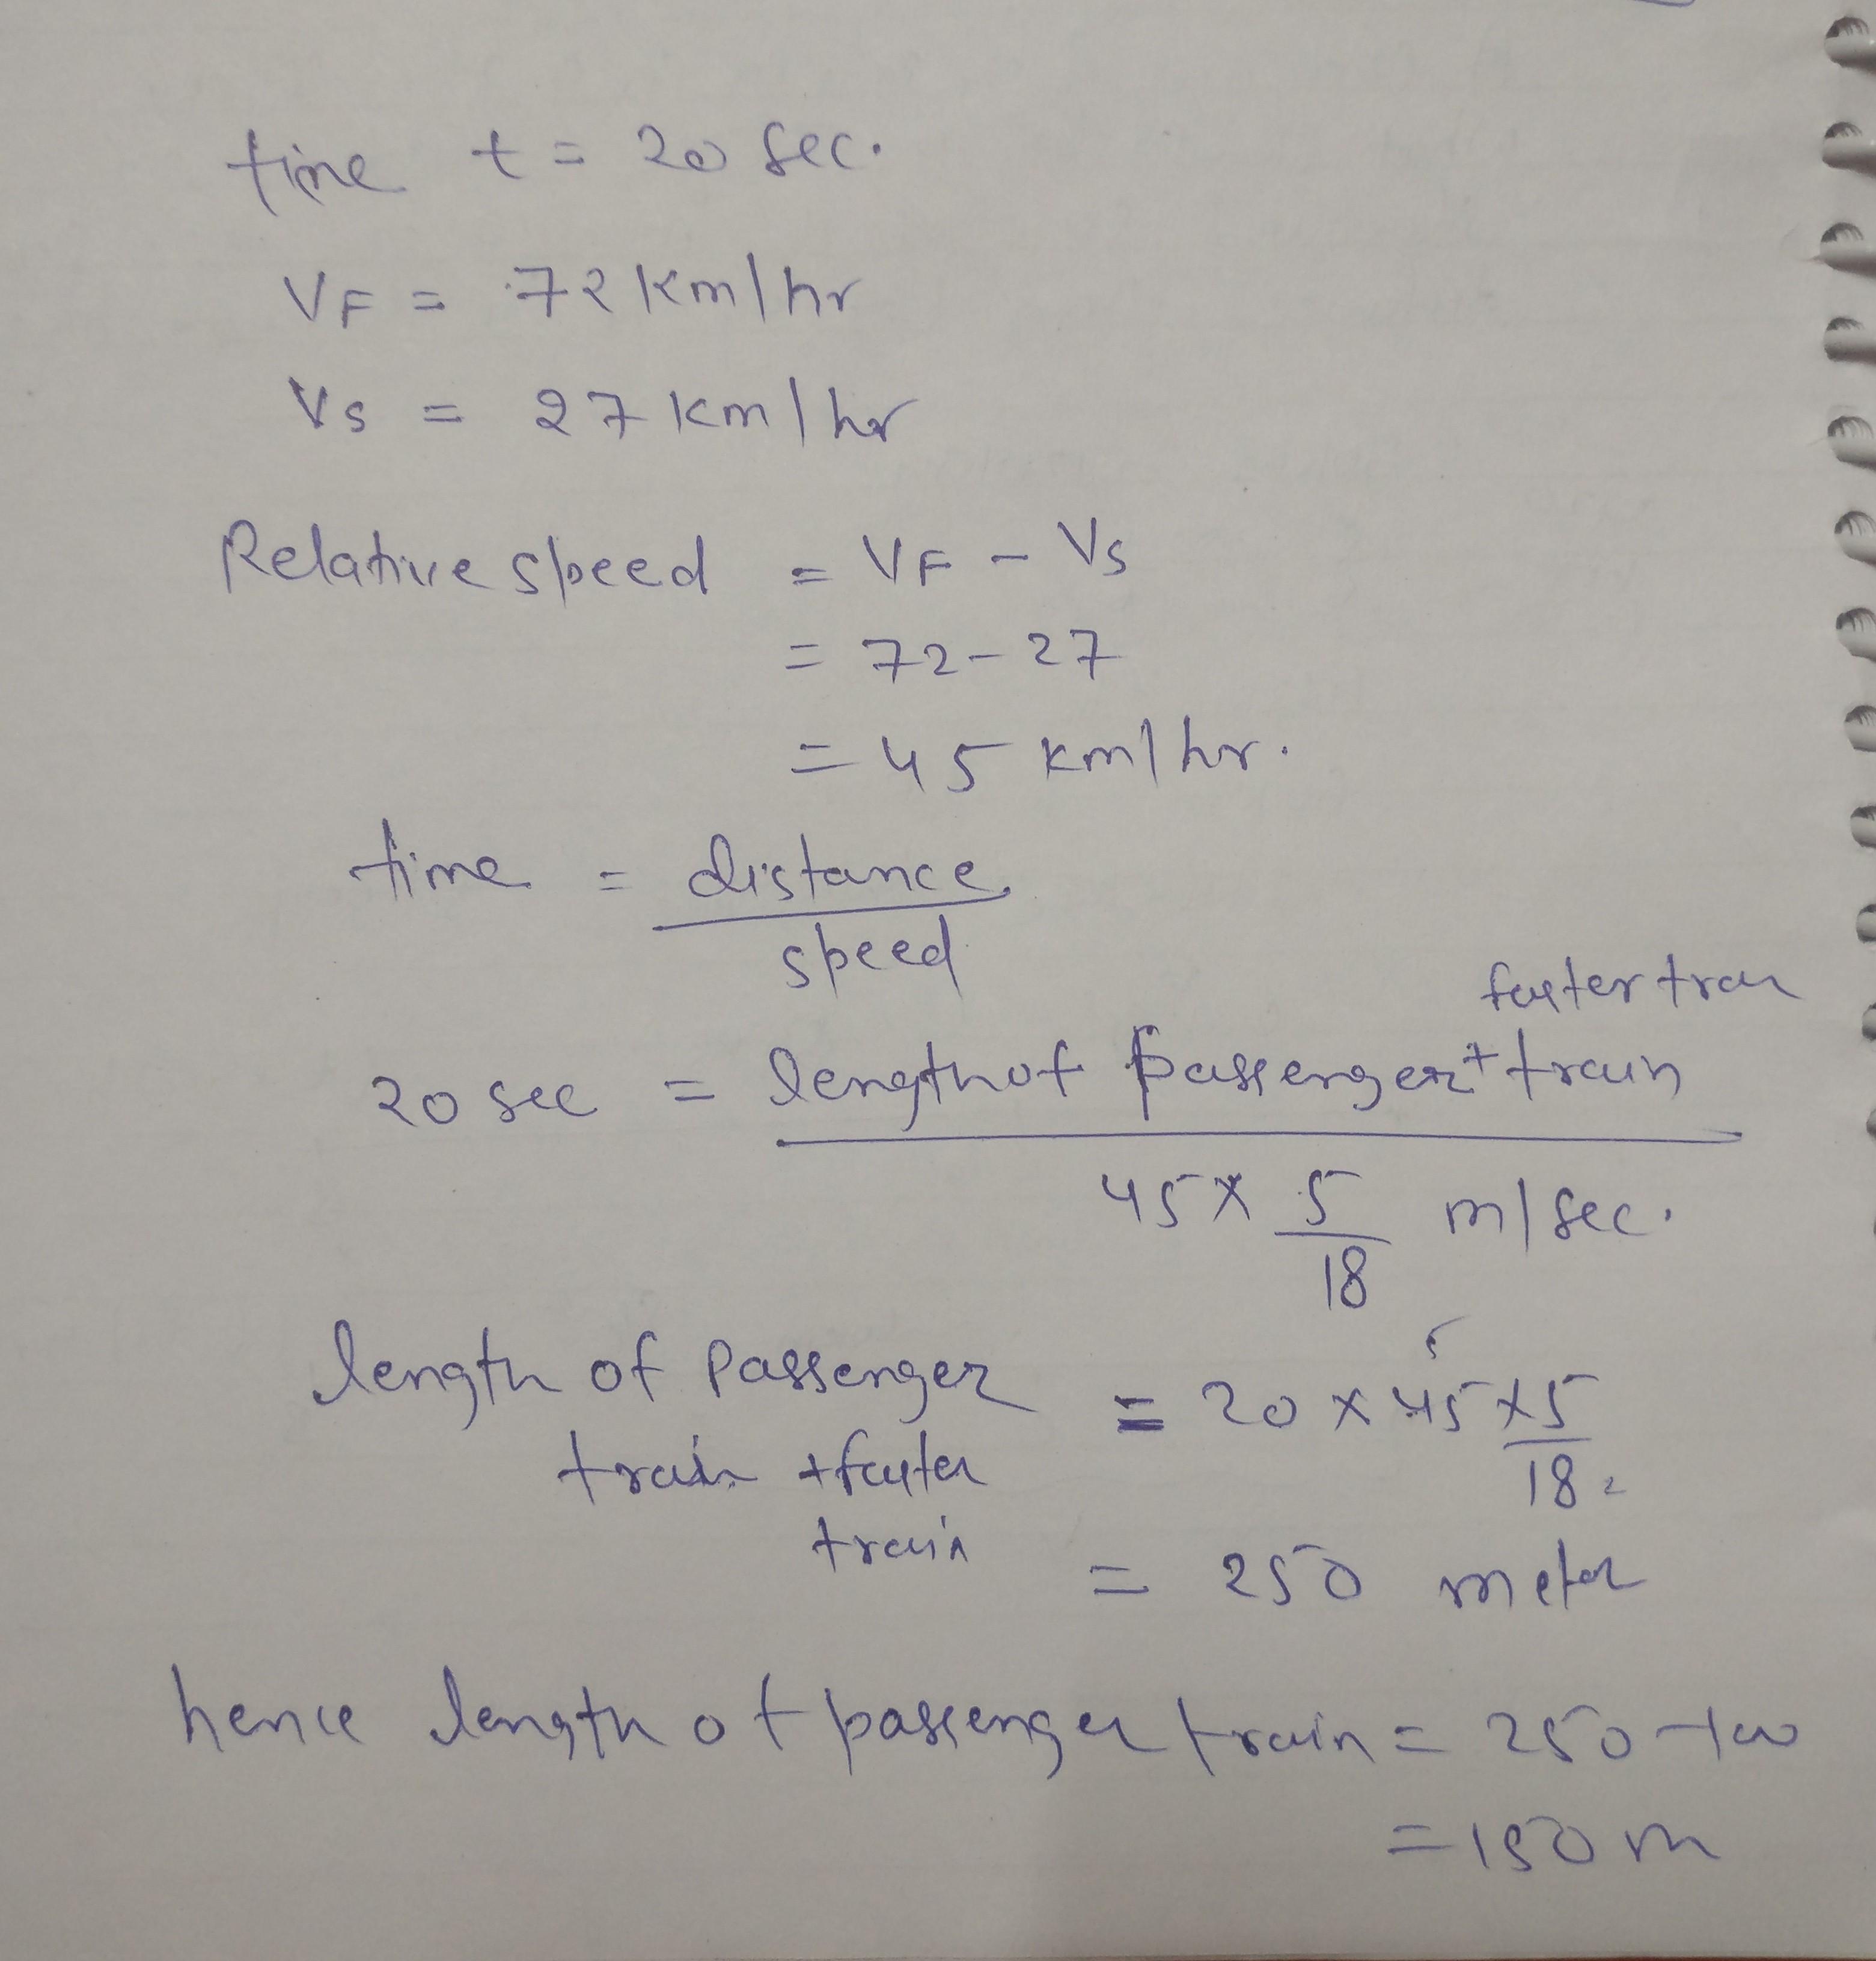 time t = 20 sec.
VF = 72 km/hr
Vs = 27 km/hr
Relative speed = VF - Vs
= 72-27
= 45 km/hr.
time = distance
speed
faster
20 sec = length of passenger + train
45 × 5 m/sec.
18
5
length of passenger = 20 × 45 × 5
train + faster 18 2
train
= 250 meter
hence length of passenger train = 250 - 100
= 150 m